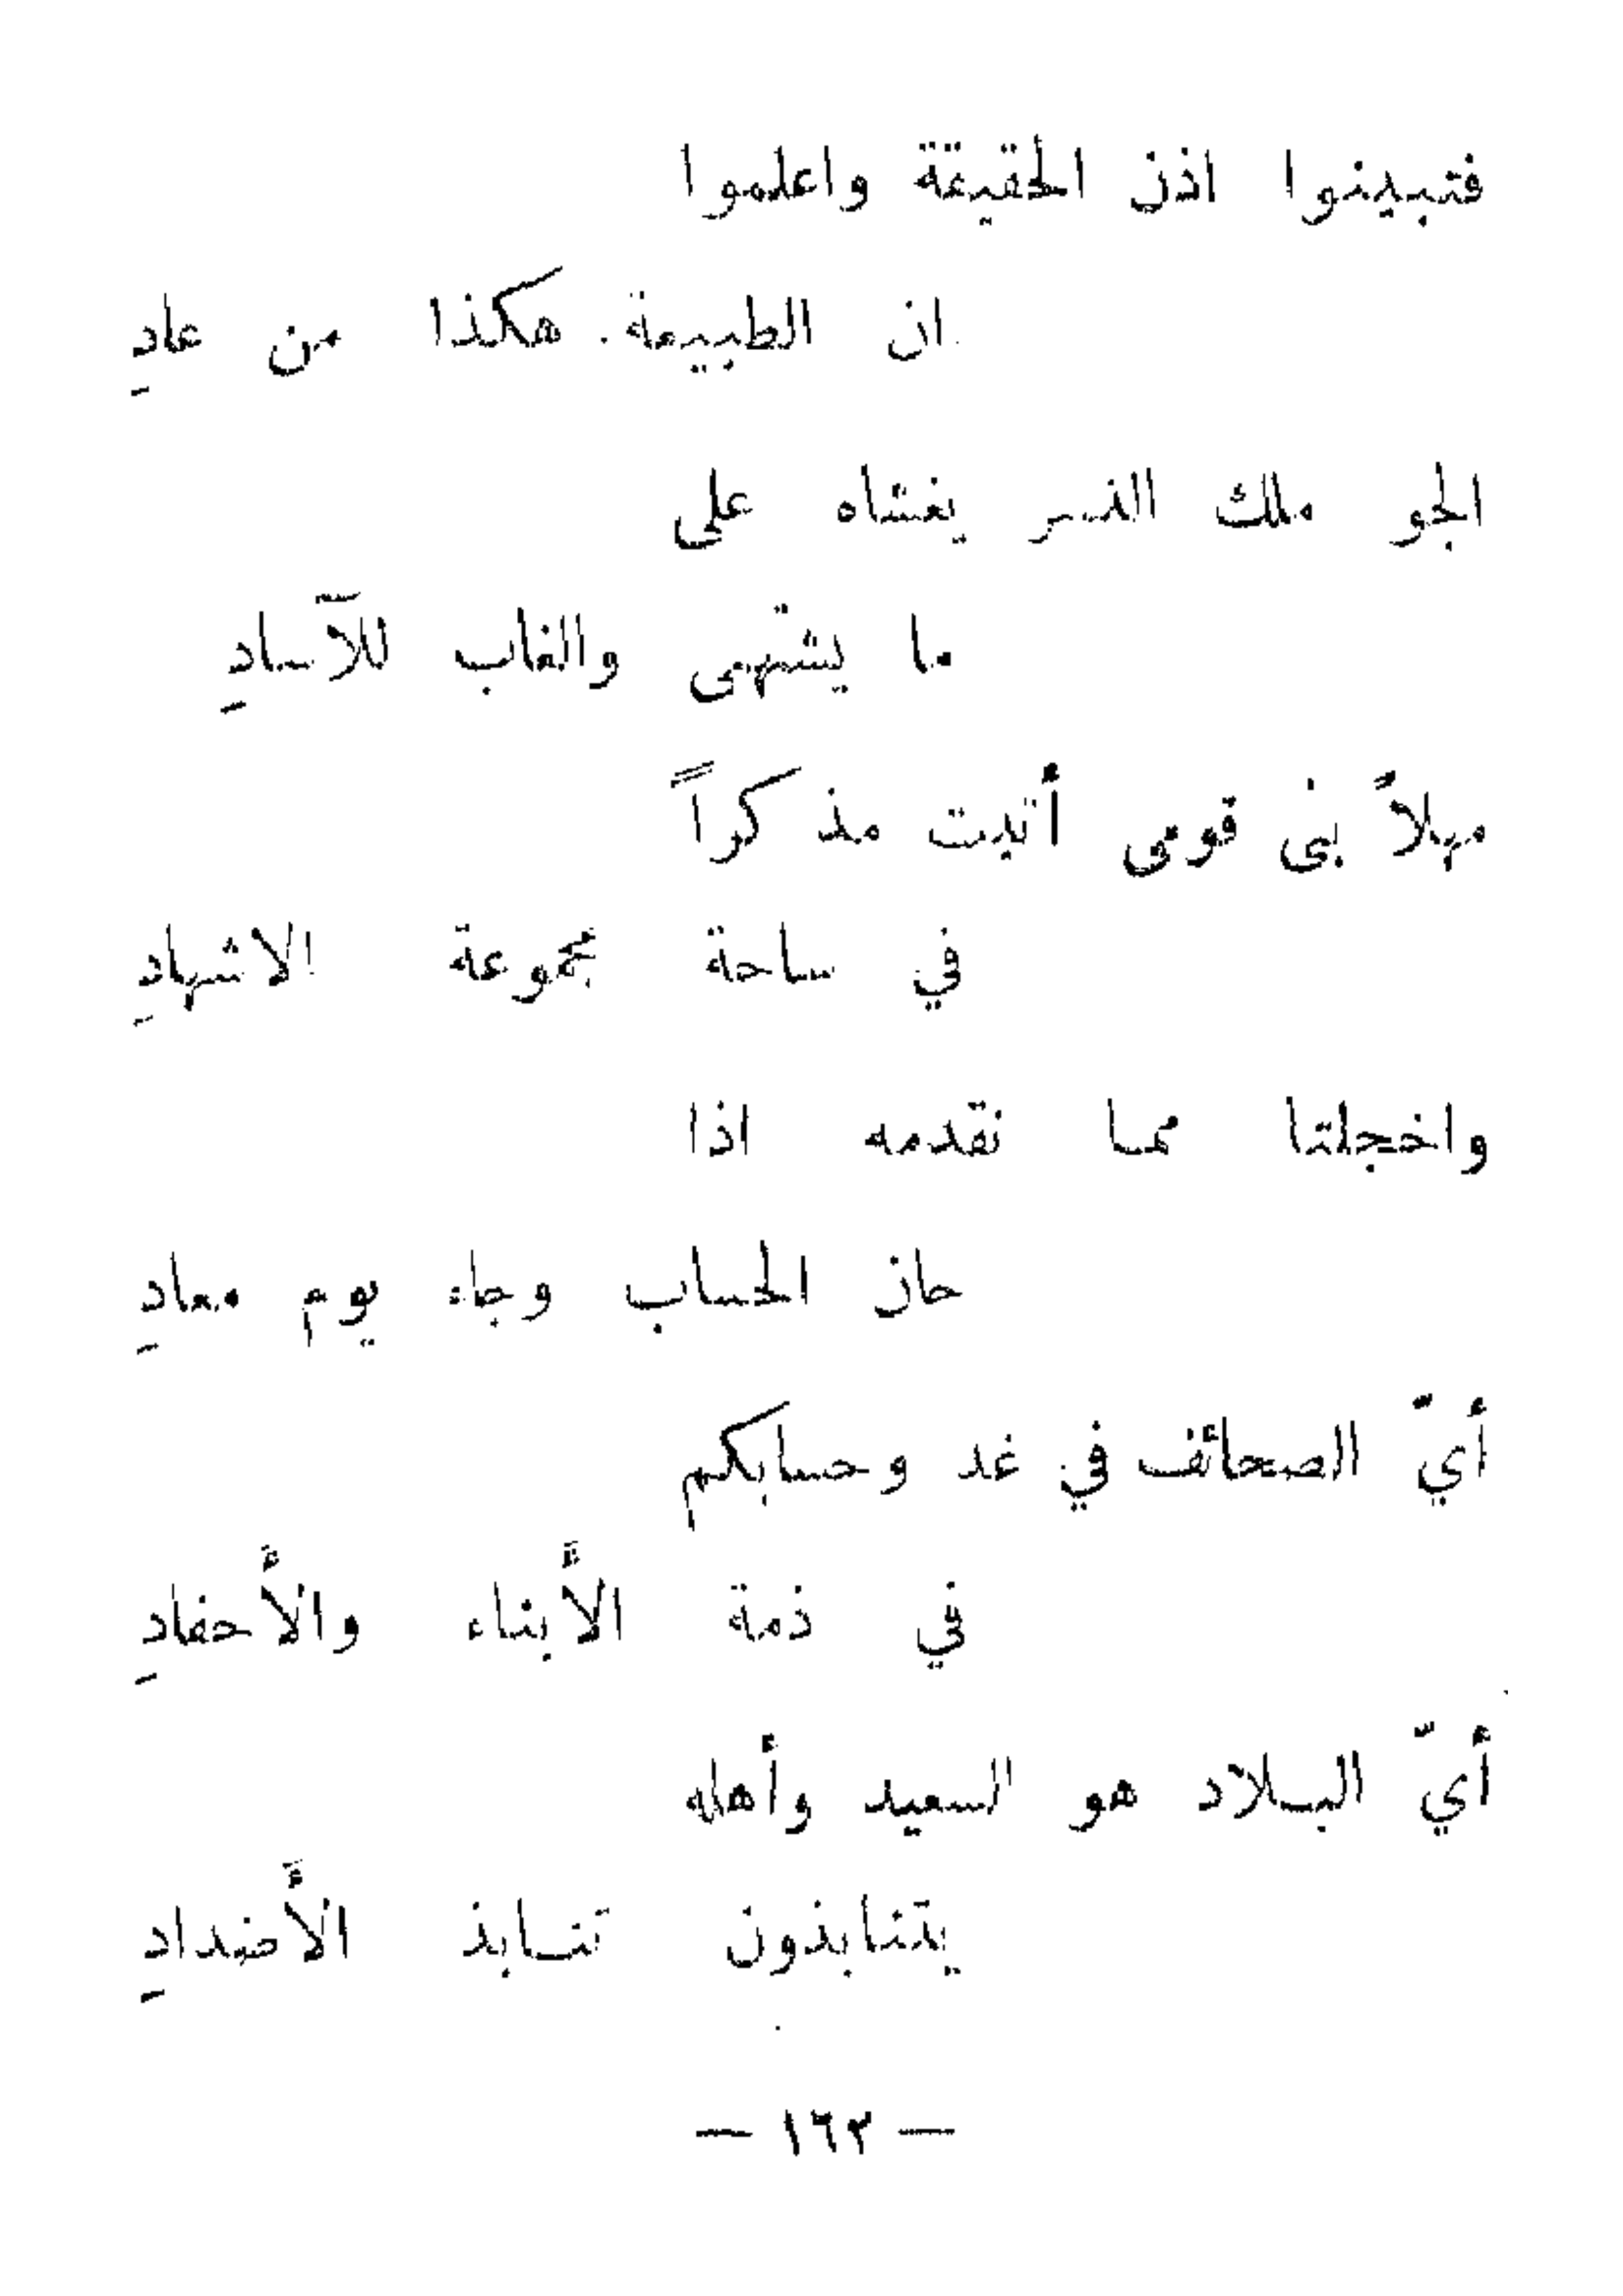 فتبينوا اذن الحقيقة واعلموا
ان الطبيعة. هكذا من عادِ
الجو ملك النسر يغشاه على
ما يشتهى والغاب للآسادِ
مهلاً بنى قومى أتيت مذكراً
في ساحة مجموعة الاشهادِ
واخجلتا مما نقدمه اذا
حان الحساب وجاء يوم معادِ
أيّ الصحائف في غد وحسابكم
في ذمة الأبناء والأحفادِ
أيّ البلاد هو السعيد وأهله
يتنابذون تنابذ الأضدادِ
— ١٦٢ —